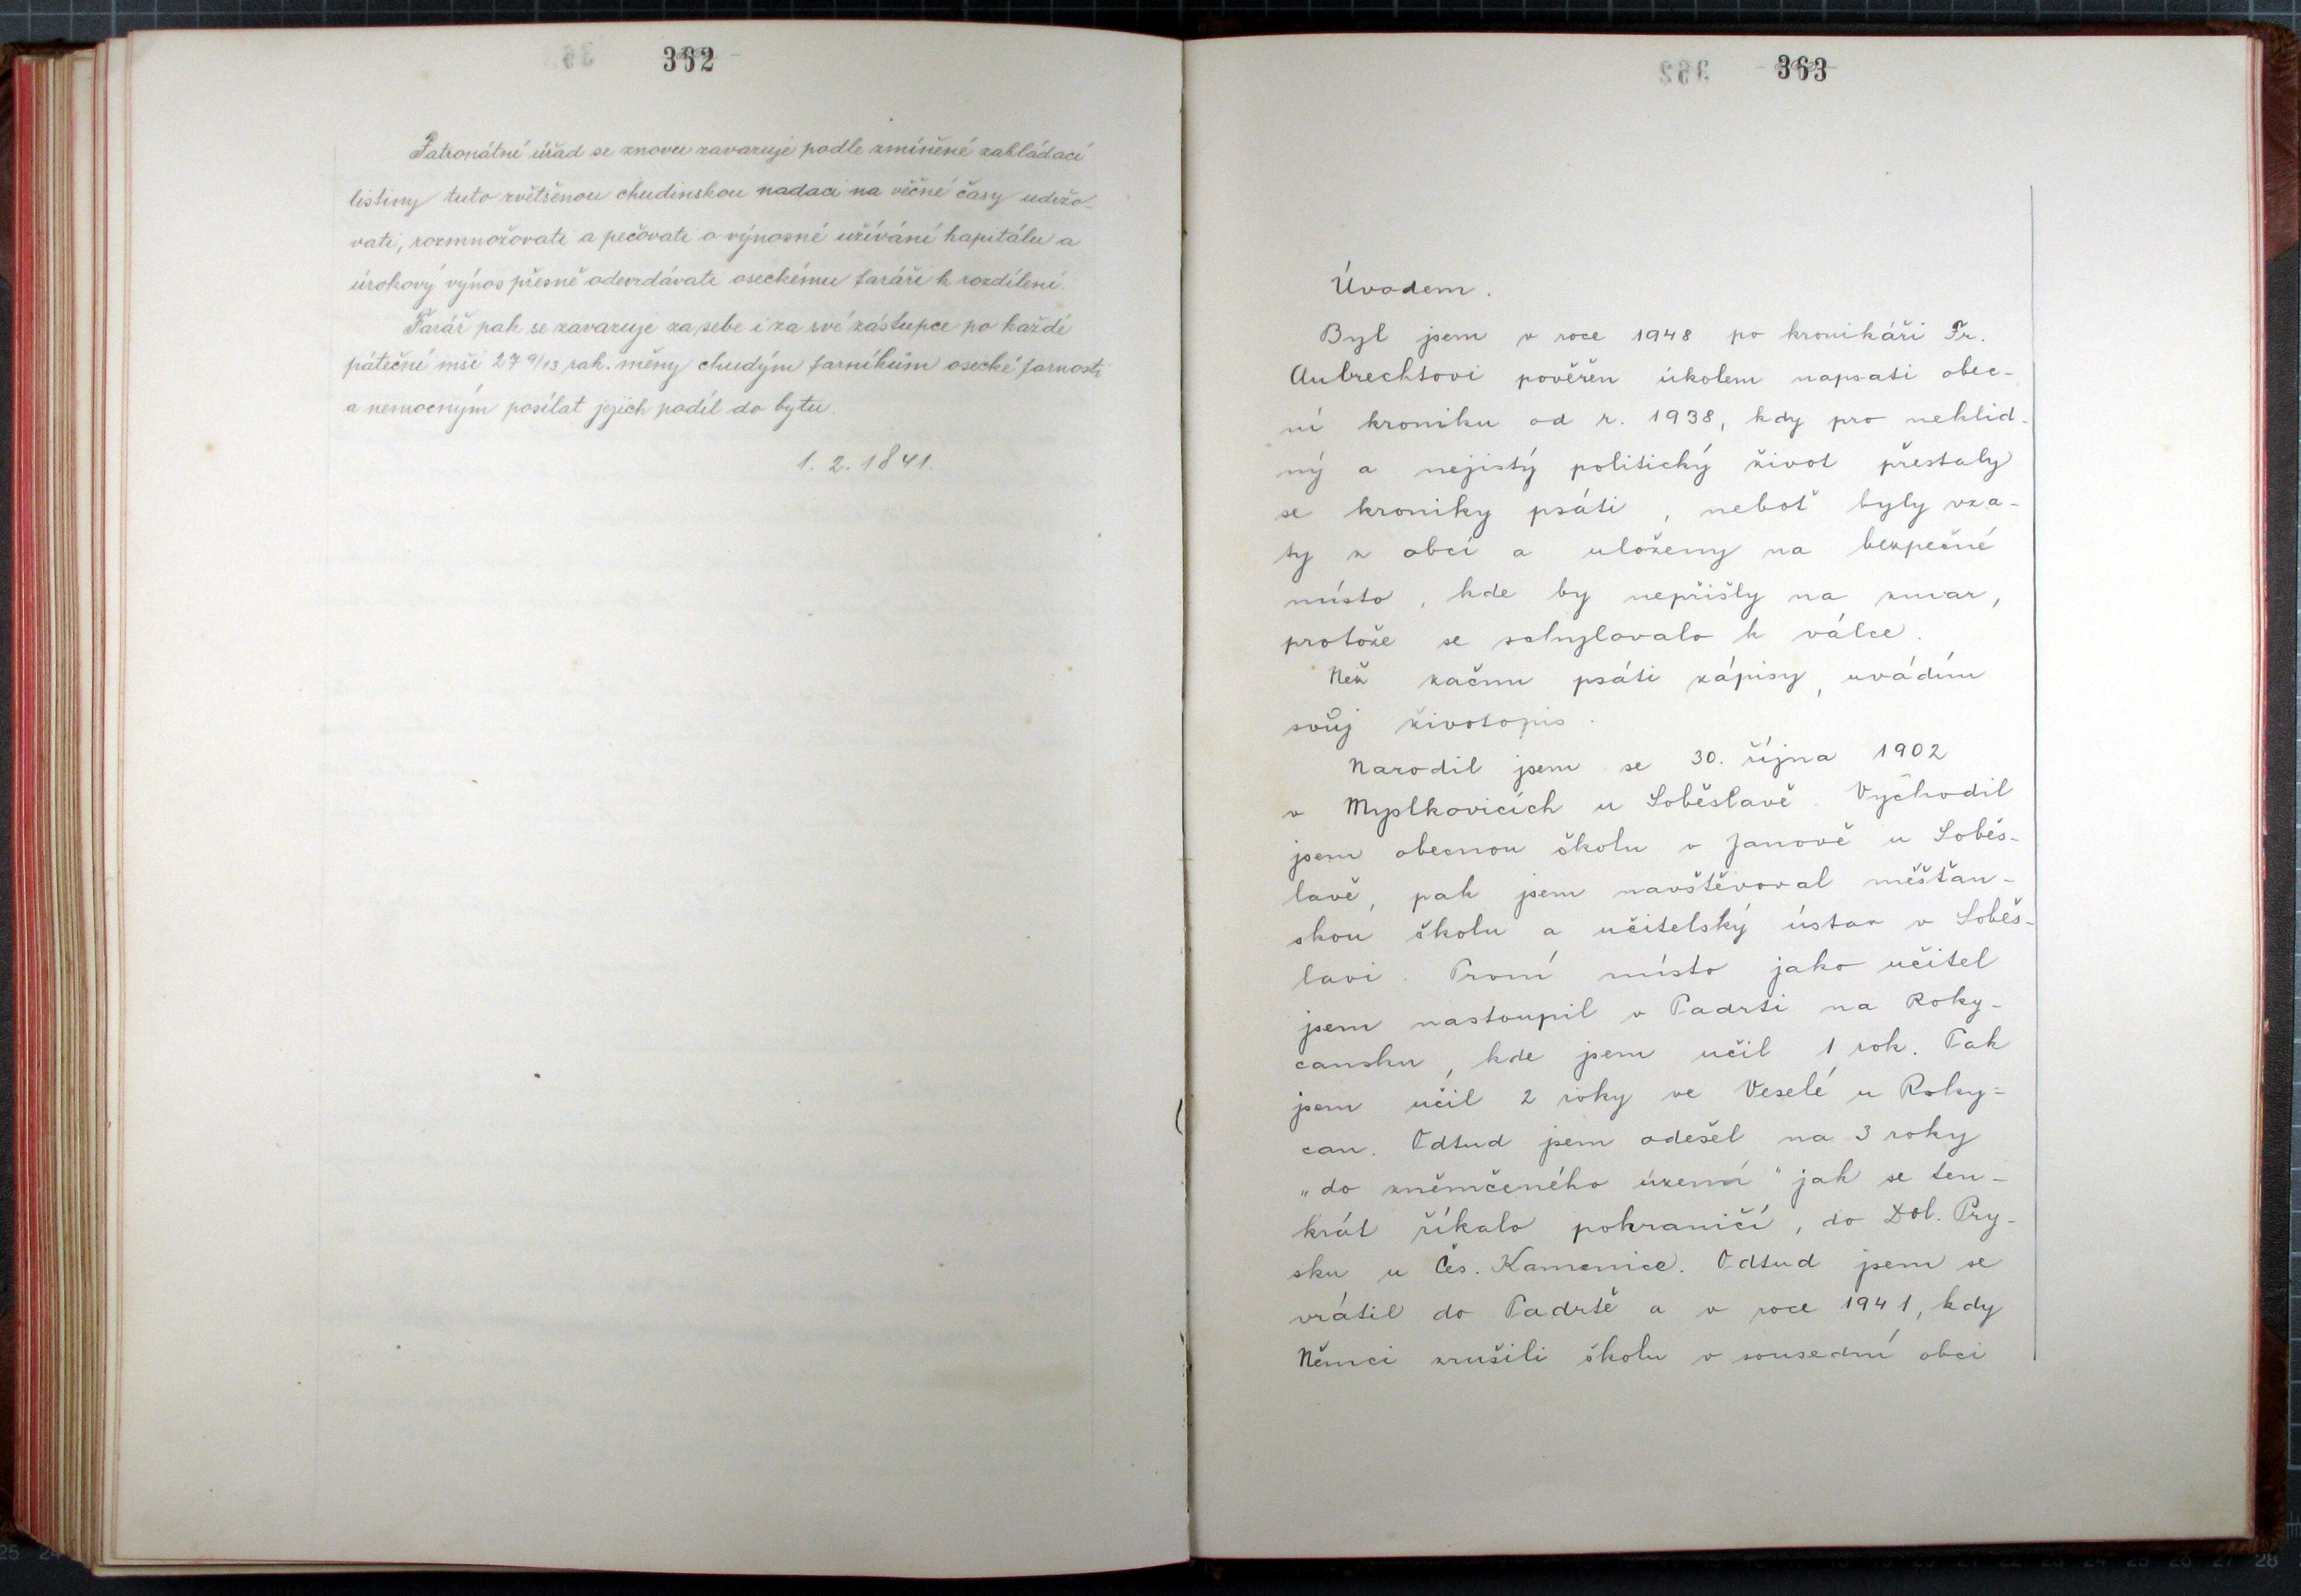 362
Patronátní úřad se znovu zavazuje podle zmíněné zakládací
listiny tuto zvětšenou chudinskou nadaci na věčné časy udržo-
vati, rozmnožovati a pečovati o výnosné užívání kapitálu a
úrokový výnos přesně odevzdávati oseckému faráři k rozdílení.
Farář pak se zavazuje za sebe i za své zástupce po každé
páteční mši 27 9/13 rak. měny chudým farníkům osecké farnosti
a nemocným posílat jejich podíl do bytu.
1. 2. 1841.
363
Úvodem.
Byl jsem v roce 1948 po kronikáři Fr.
Aubrechtovi pověřen úkolem napsati obec-
ní kroniku od r. 1938, kdy pro neklid-
ný a nejistý politický život přestaly
se kroniky psáti, neboť byly vza-
ty z obcí a uloženy na bezpečné
místo, kde by nepřišly na zmar,
protože se schylovalo k válce.
Než začnu psáti zápisy, uvádím
svůj životopis.
Narodil jsem se 30. října 1902
v Myslkovicích u Soběslavě. Vychodil
jsem obecnou školu v Janově u Soběs-
lavě, pak jsem navštěvoval měšťan-
skou školu a učitelský ústav v Soběs-
lavi. První místo jako učitel
jsem nastoupil v Padrti na Roky-
cansku, kde jsem učil 1 rok. Pak
jsem učil 2 roky ve Veselé u Roky-
can. Odtud jsem odešel na 3 roky
"do zněmčeného území" jak se ten-
krát říkalo pohraničí, do Dol. Pry-
sku u Čes. Kamenice. Odtud jsem se
vrátil do Padrtě a v roce 1941, kdy
Němci zrušili školu v sousední obci